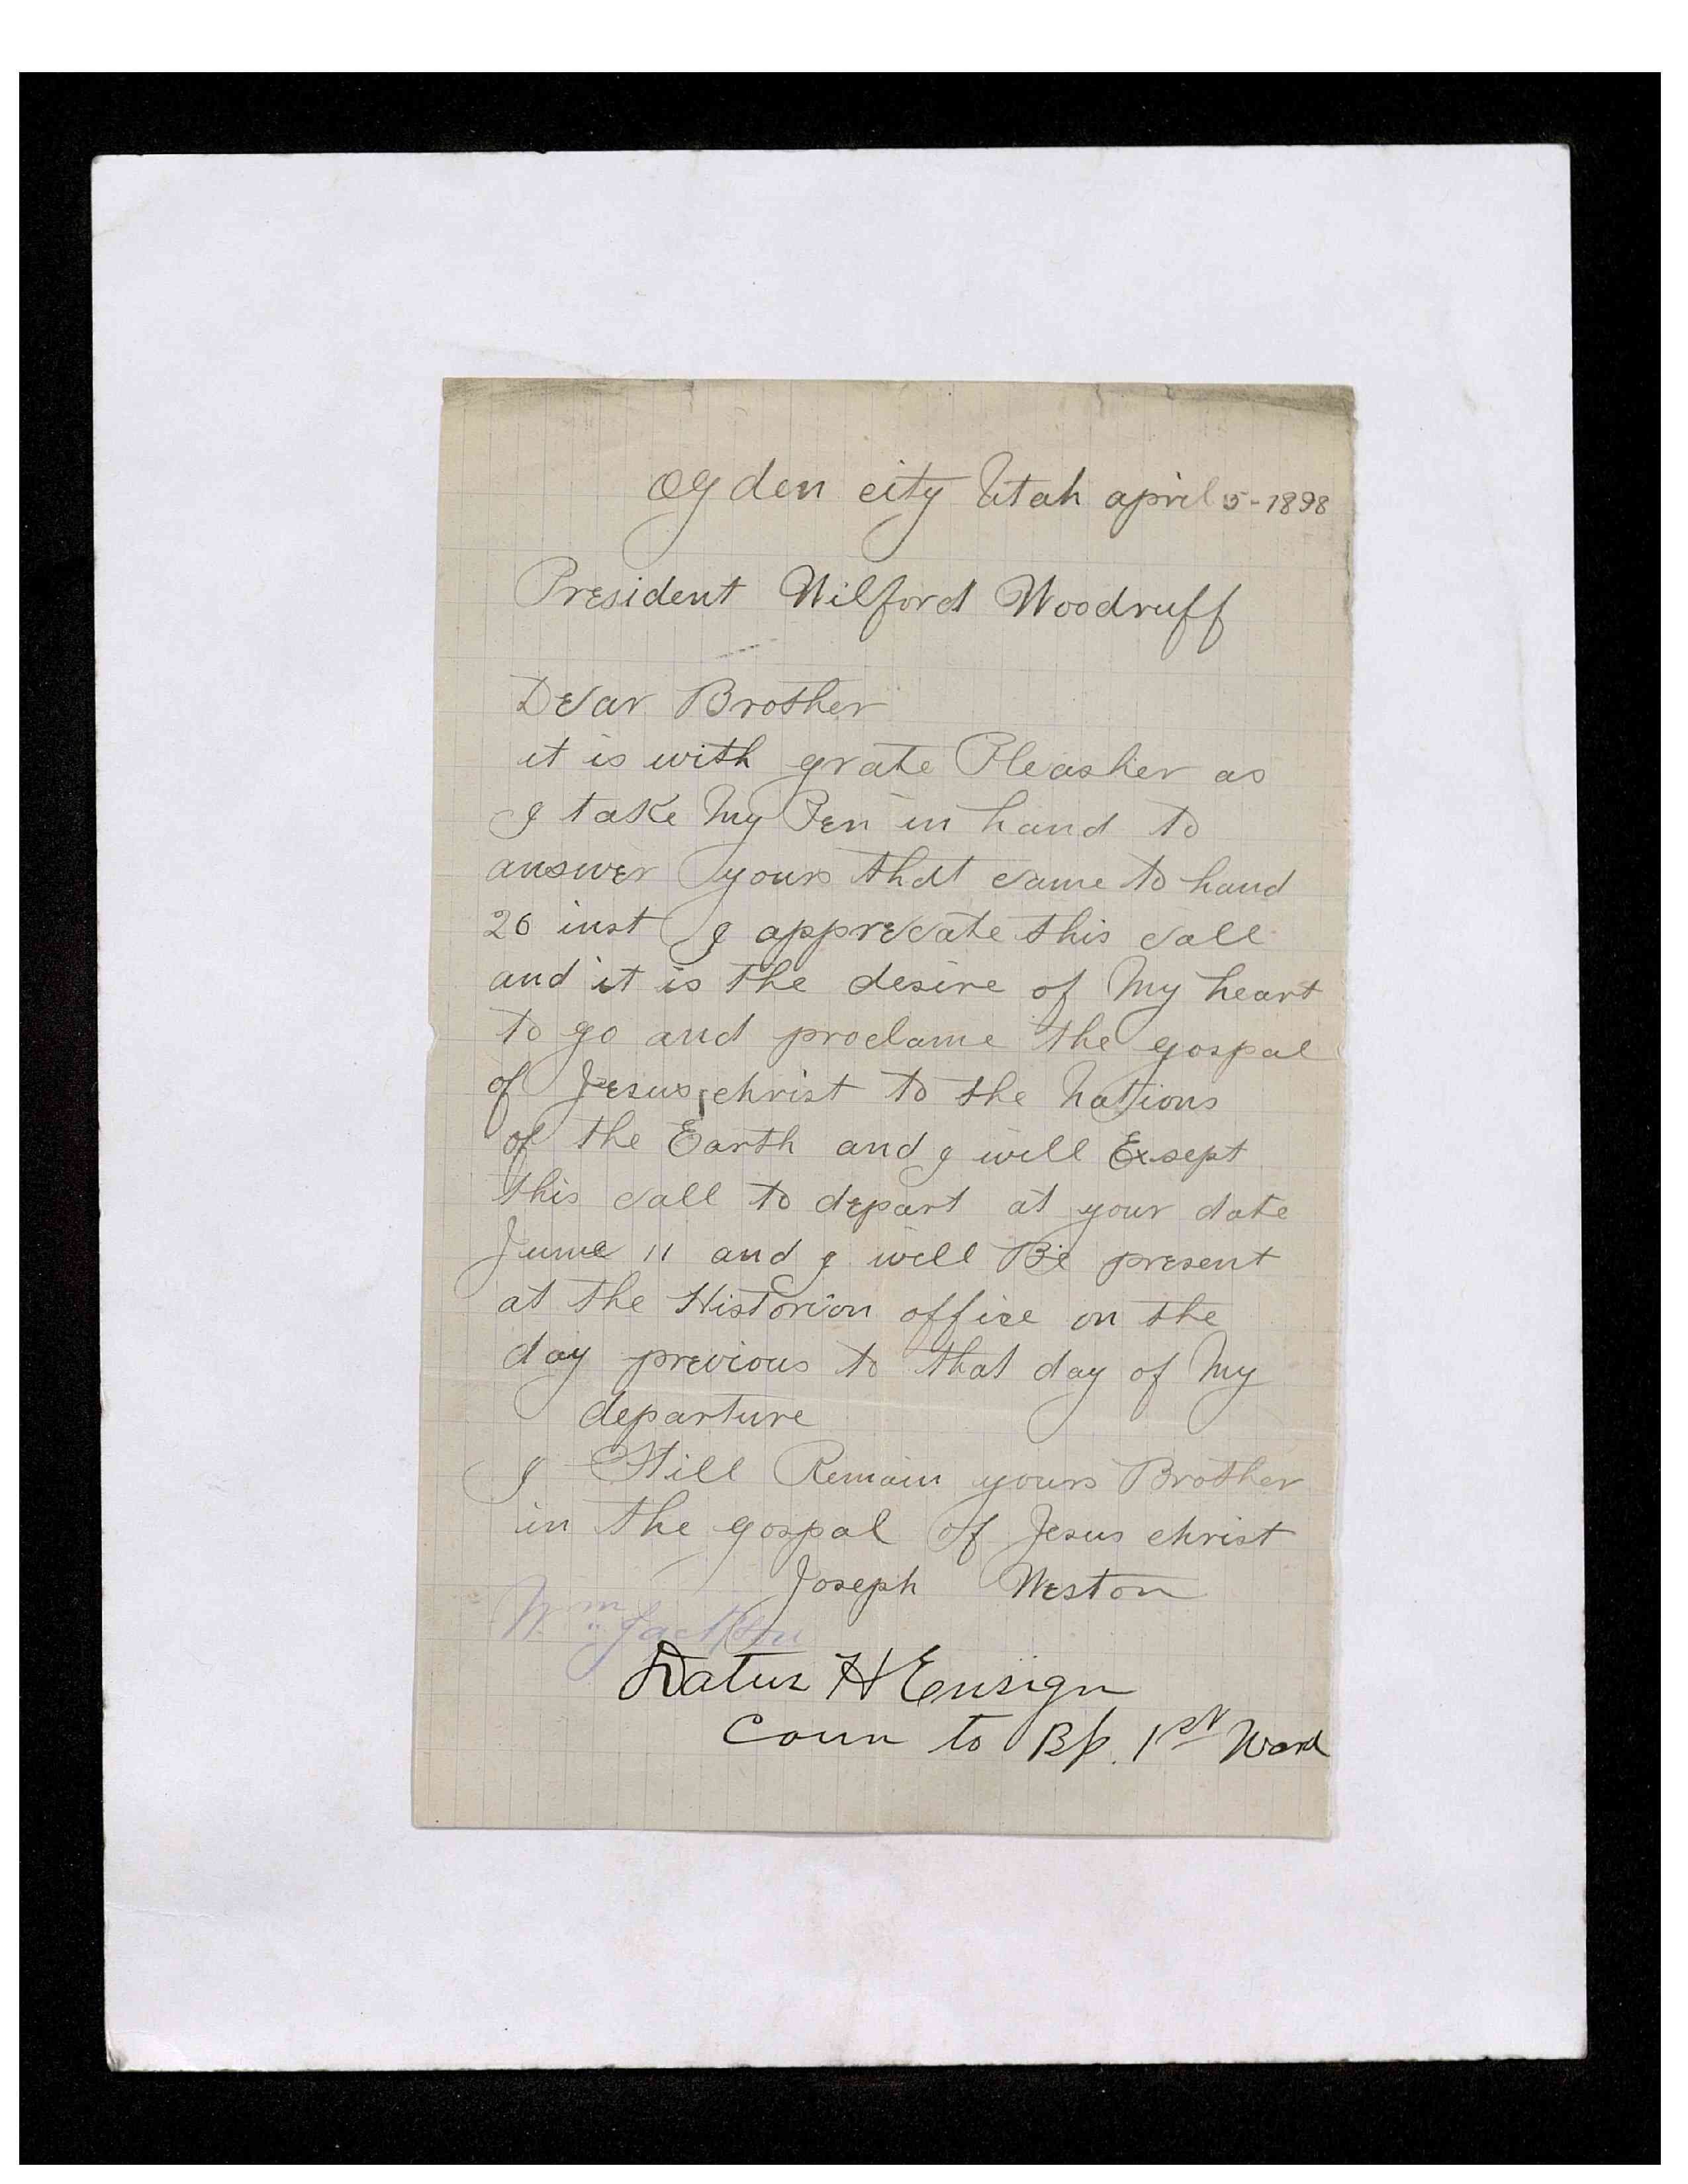 Ogden city Utah april 5-1898
President Wilford Woodruff
Dear Brother
it is with grate Pleasher as
I take My Pen in hand to
answer yours that came to hand
26 inst I apprecate this call
and it is the desire of My heart
to go and proclame the gospal
of Jesus christ to the Nations
of the Earth and I will Exsept
this call to depart at your date
June 11 and I will Be present
at the Historian office on the
day previous to that day of My
departure
I Still Remain yours Brother
in the gospal of Jesus christ
Joseph Weston
Wm Jackson
Datus H Ensign
Coun to Bp. 1st Ward